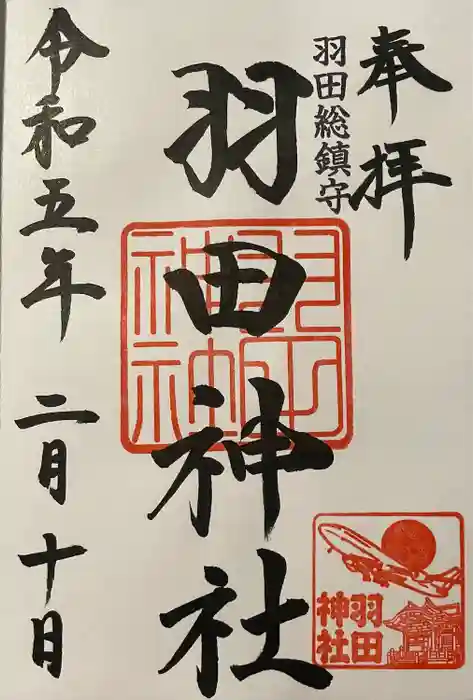 奉拝
羽田総鎮守
羽田神社
令和五年 二月十日
羽田神社
羽田
神社